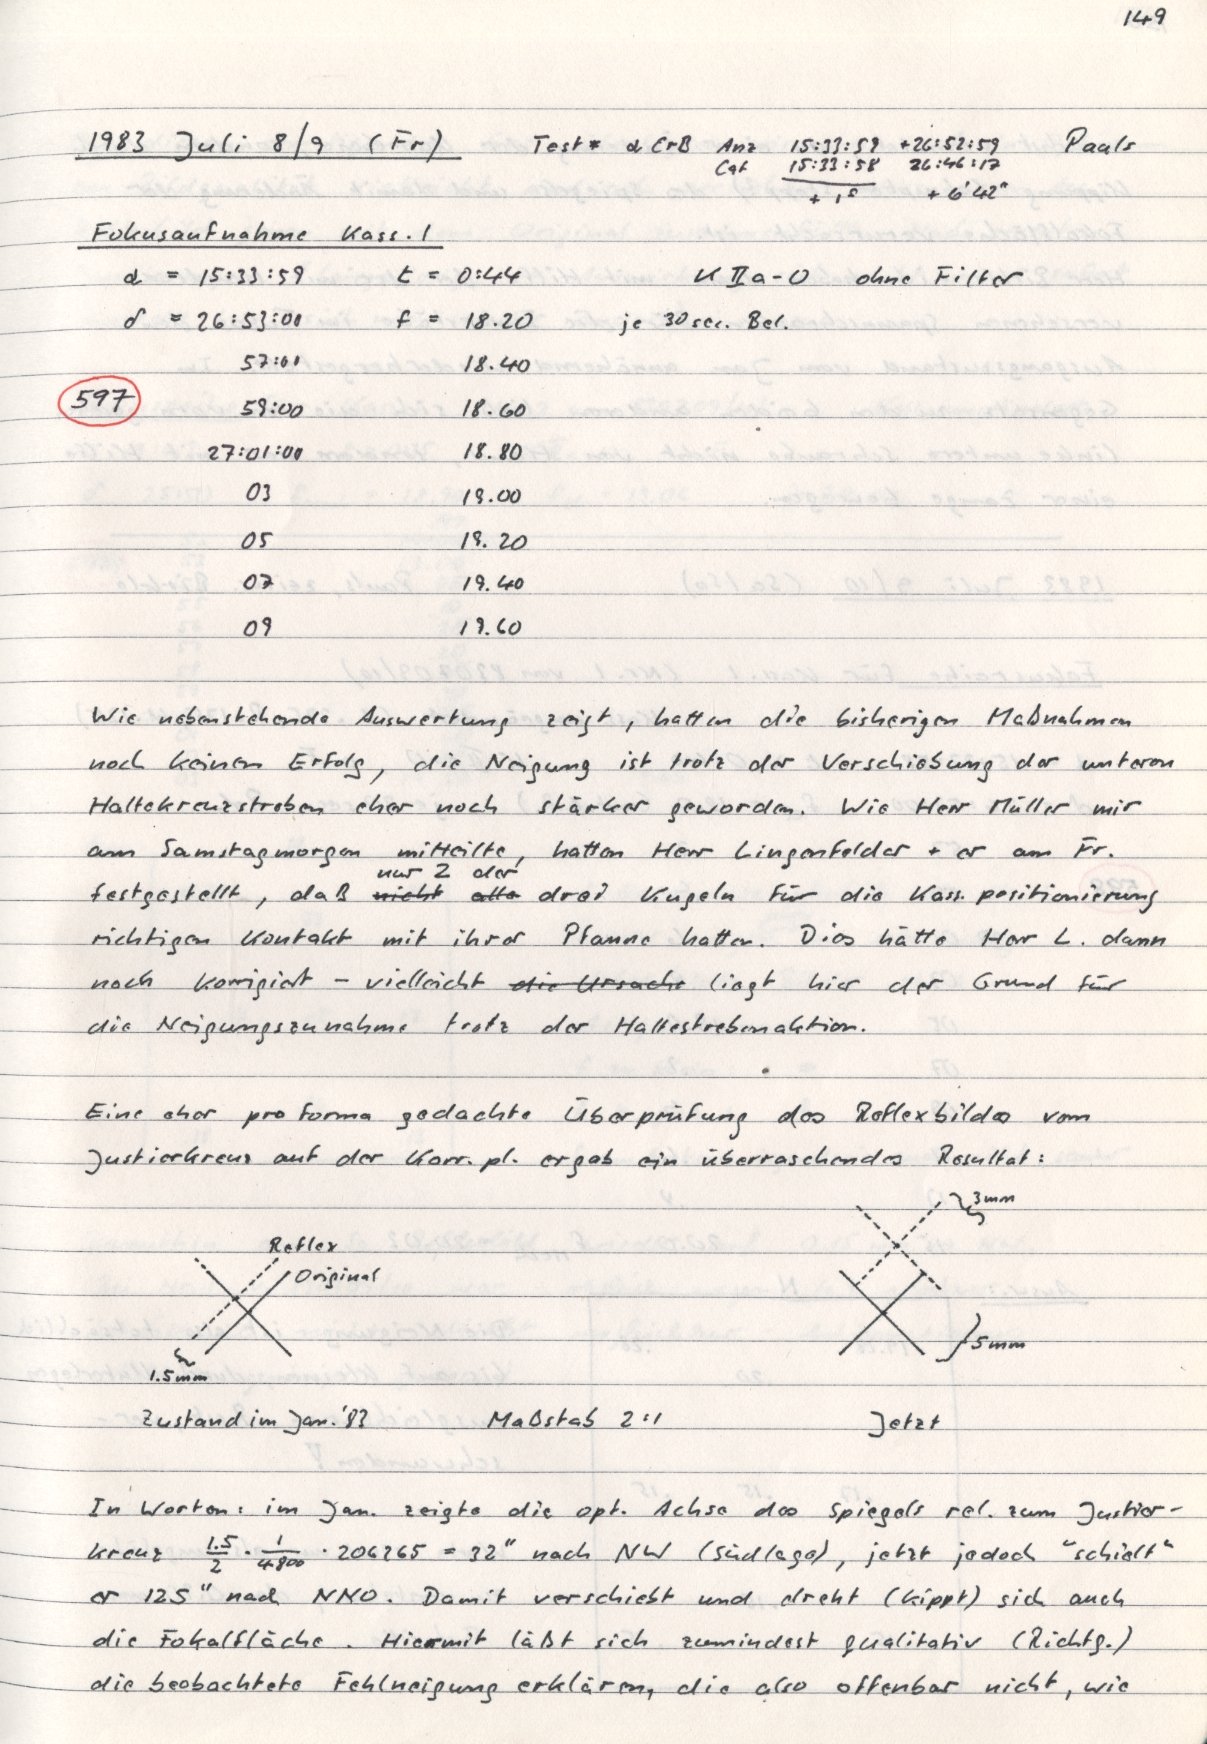 149
1983 Juli 8/9 (Fr) Test* α CrB Anz 15:33:59 +26:52:59 Pauls
Cat 15:33:58 26:46:17
+ 1s + 6'42"
Fokusaufnahme Kass. 1
α = 15:33:59 t = 0:44 K IIa-O ohne Filter
δ = 26:53:00 f = 18.20 je 30 sec. Bel.
57:01 18.40
597
59:00 18.60
27:01:00 18.80
03 19.00
05 19.20
07 19.40
09 19.60
Wie nebenstehende Auswertung zeigt, hatten die bisherigen Maßnahmen
noch keinen Erfolg, die Neigung ist trotz der Verschiebung der unteren
Haltekreuzstreben eher noch stärker geworden. Wie Herr Müller mir
am Samstagmorgen mitteilte, hatten Herr Lingenfelder + er am Fr.
nur 2 der
festgestellt, daß nicht alle drei Kugeln für die Kass. positionierung
richtigen Kontakt mit ihrer Pfanne hatten. Dies hätte Herr L. dann
noch korrigiert - vielleicht die Ursache liegt hier der Grund für
die Neigungszunahme trotz der Haltestrebenaktion.
Eine eher pro forma gedachte Überprüfung des Reflexbildes vom
Justierkreuz auf der Korr. pl. ergab ein überraschendes Resultat:
3mm
Reflex
Original
5mm
1.5mm
Zustand im Jan. '83 Maßstab 2:1 Jetzt
In Worten: im Jan. zeigte die opt. Achse des Spiegels rel. zum Justier-
kreuz 1.5/2 · 1/4800 · 206265 = 32" nach NW (Südlage), jetzt jedoch "schielt"
er 125" nach NNO. Damit verschiebt und dreht (kippt) sich auch
die Fokalfläche. Hiermit läßt sich zumindest qualitativ (Richtg.)
die beobachtete Fehlneigung erklären, die also offenbar nicht, wie